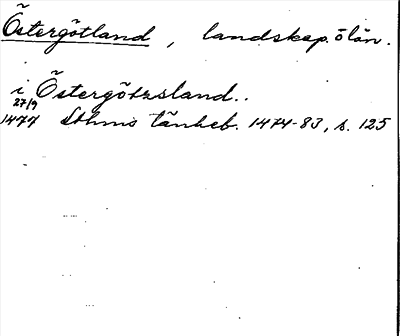 Östergötland, landskap. ö län.
i Östergötzsland..
27/9
1477 Sthms tänkeb. 1474-83, s. 125